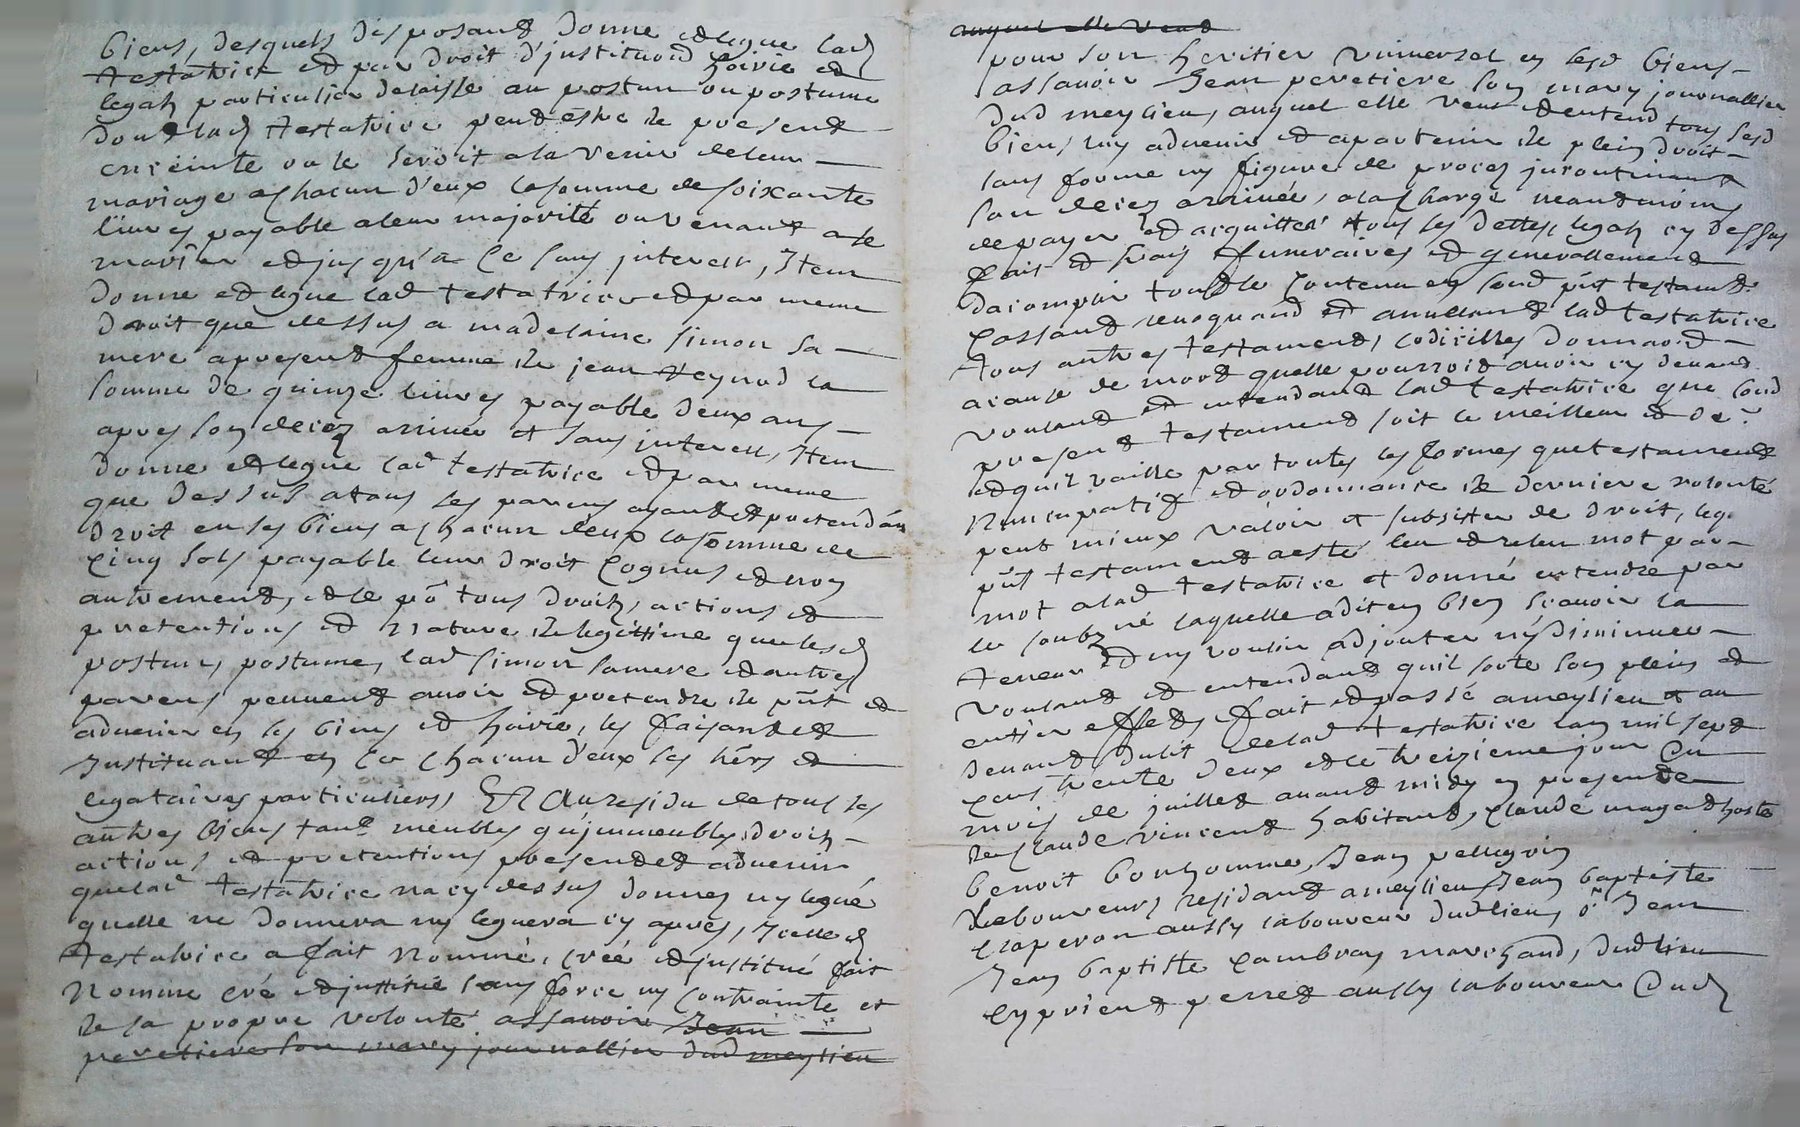 biens, desquels disposant donne et legue lad
testatrice et par droit d'justitution hoirie et
legat particulier delaisse au postun ou postume
dont lad testatrice peut estre le present
enceinte ou le seroit a la venir de leur
mariage a chacun d'eux la somme de soixante
livres payable a leur majorité ou venant a se
marier et jusqu'a ce sans jnterest, Item
donne et legue lad testatrice et par meme
droit que dessus a madelaine simon sa
mere apresent femme de jean Reynod la
somme de quinze livres payable deux ans
apres son decez arrivée et sans jnterest, Item
donne et legue lad testatrice et par meme
que dessus a tous les parens ayant et pretendan
droit en ses biens a chacun deux la somme de
cinq sols payable leur droit cognus et non
autrement, et ce po tous droits, actions et
pretentions et nature de legittime que lesd
postun, postume, lad simon sa mere et autres
parens peuvent avoir et pretendre de put et
advenir en ses biens et hoirie, les faisant et
Jnstituant en ce chacun d'eux ses hers et
legataires particuliers, Et Au residu de tous les
autres biens tant meubles qu'jmmeubles, droits
actions et pretentions present et advenir
que lad testatrice na cy dessus donnes ny legué
quelle ne donnera ny leguera cy apres, Jcelle d
testatrice a fait nommé, créé et justitué fait
nomme cré et justitué sans force ny contrainte et
de sa propre volonté assavoir Jean
peretiere son mary journallier dud meylieu
auquel elle veut
pour son heritier universel en sesd biens
assavoir Jean peretiere son mary journallier
dud meylieu, auquel elle veut et entend tous sesd
biens luy advenir et apartenir de plein droit
sans forme ny figure de procez jncontinant
son decez arrivée, a la charge neantmoins
de payer et acquitter tous ses dettes, legats cy dessus
fait et frais funeraires et generallement
dacomplir tout le contenu en sond put testamt.
Cassant revoquand et annullant lad testatrice
tous autres testament, codicilles donnaon
a cause de mort quelle pourroit avoir cy devant
voulant et entendant lad testatrice que sond
present testament soit le meilleur et der
et quil vaille par toutes les formes que testament
nuncupatif et ordonnance de derniere volonté
peut mieux valoir et subsister de droit, leq
put testament aesté leu et releu mot par
mot a lad testatrice et donné entendre par
le soubz né laquelle a dit en bien scavoir la
teneur et ny vouloir adjouter ny diminuer
voulant et entendant quil sorte son plein et
entier effet, fait et passé a meylieu et au
devant du lit de lad testatrice lan mil sept
cens trente deux et le treizieme jour du
mois de juillet avant midy en presence
de claude vincent habitant, claude magat hoste
benoit bonhomme, Jean pellegrin
Labouveurs residant a meylieu Jean baptiste
claperon aussy laboureur dudlieu, sr Jean
Jean baptiste cambray marchand, dudlieu
cyprient perret aussy laboureur dud